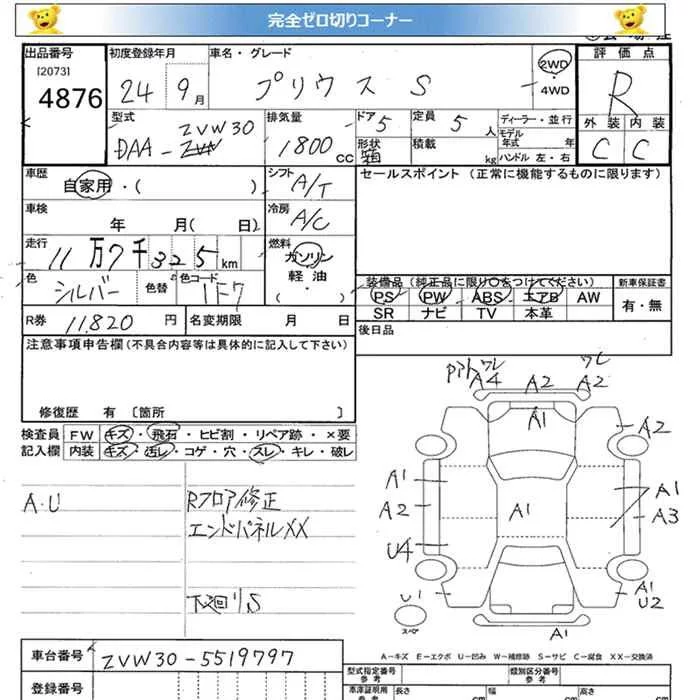 完全ゼロ切りコーナー
出品番号 初度登録年月 車名・グレード 評価点
[2073]
4876 24 9月 プリウス S 2WD・4WD R
型式 排気量 ドア 5 定員 5人 ディーラー・並行
モデル年式 年
外装 内装
DAA-ZVW30 1800cc 形状 箱 積載 kg ハンドル 左・右 C C
車歴 シフト セールスポイント (正常に機能するものに限ります)
自家用・( ) A/T
車検 冷房
年 月( 日) A/C
走行 燃料
11万7千325km ガソリン
軽油
・( )
色 シルバー 色替 色コード 1F7
装備品 (純正品に限り○をつけてください) 新車保証書
PS PW ABS エアB AW 有・無
SR ナビ TV 本革
R券 11,820 円 名変期限 月 日
後日品
注意事項申告欄(不具合内容等は具体的に記入して下さい)
修復歴 有〔箇所 〕
検査員 FW キズ・飛石・ヒビ割・リペア跡・×要
記入欄 内装 キズ・汚レ・コゲ・穴・スレ・キレ・破レ
A・U Rフロア修正
エンドパネルXX
下廻りS
ワレ ワレ
A4 A2 A2
A1
A2
A1 A1
A2 A1 A3
U4
U1 A1
U2
スペア A1
A-キズ E-エクボ U-凹み W-補修跡 S-サビ C-腐食 XX-交換済
車台番号 ZVW30-5519797
登録番号
型式指定番号 参考 類別区分番号 参考
車庫証明用 参考 長さ cm 幅 cm 高さ cm